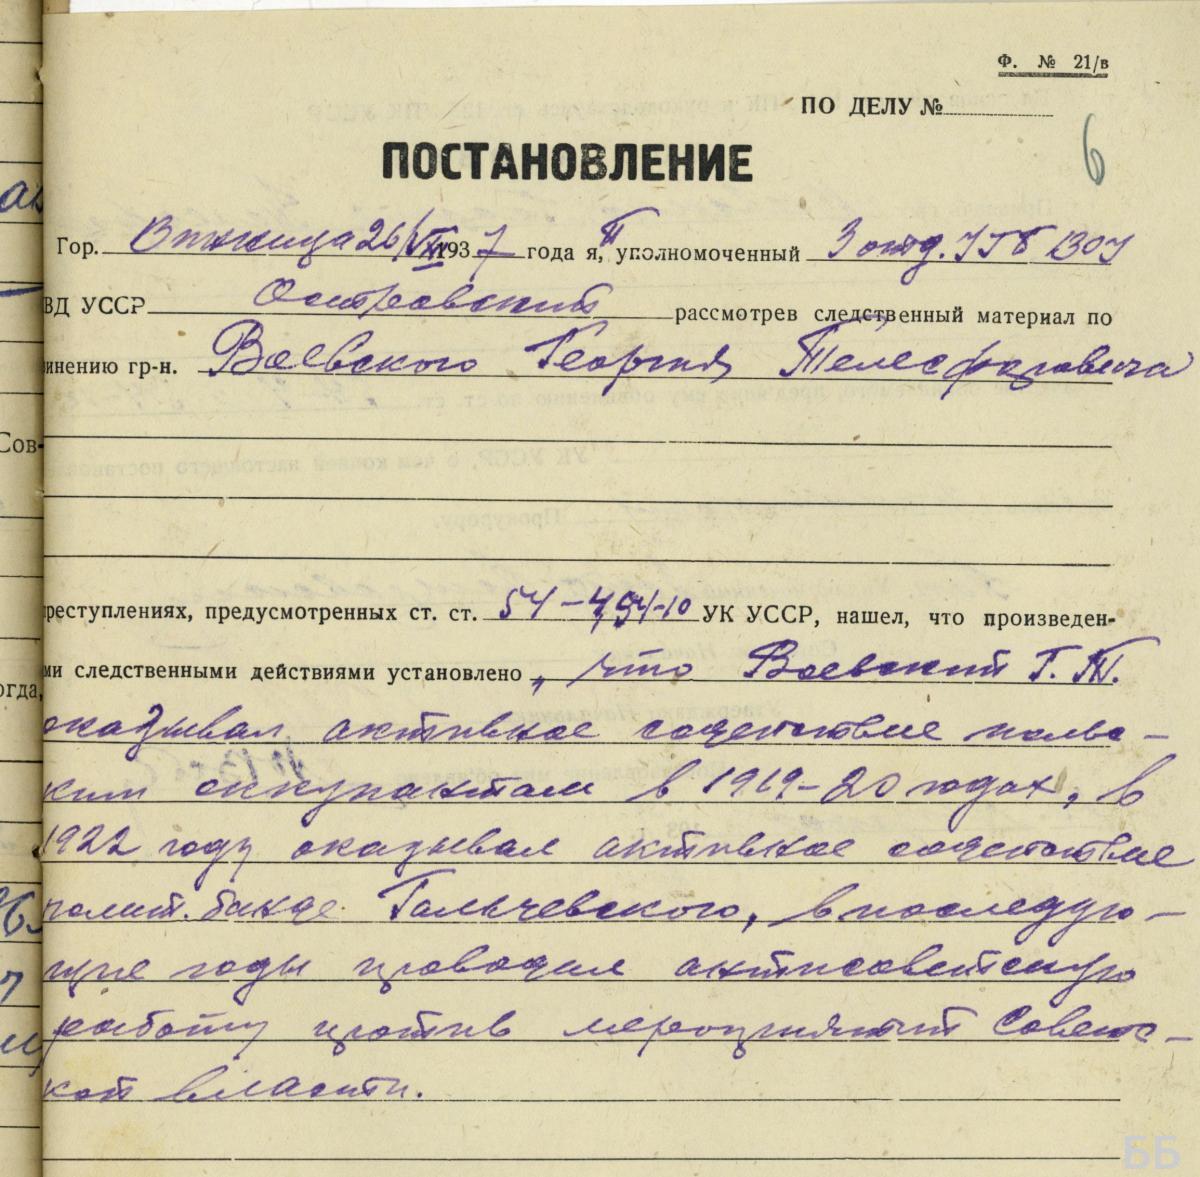 Ф. № 21/в
ПО ДЕЛУ №
6
ПОСТАНОВЛЕНИЕ
Гор. Винница 26/VIII 1937 года я, уполномоченный 3 отд. УГБ ВОУ
ВД УССР Островский рассмотрев следственный материал по
инению гр-н. Воевского Георгия Телесфоровича
Сов-
реступлениях, предусмотренных ст. ст. 54-4, 54-10 УК УССР, нашел, что произведен-
ми следственными действиями установлено, что Воевский Г. Т.
огда,
оказывал активное содействие польс-
ким оккупантам в 1919-20 годах, в
1922 году оказывал активное содействие
полит. банде Гальчевского, в последую-
щие годы проводил антисоветскую
работу против мероприятий Советс-
кой власти.
ББ